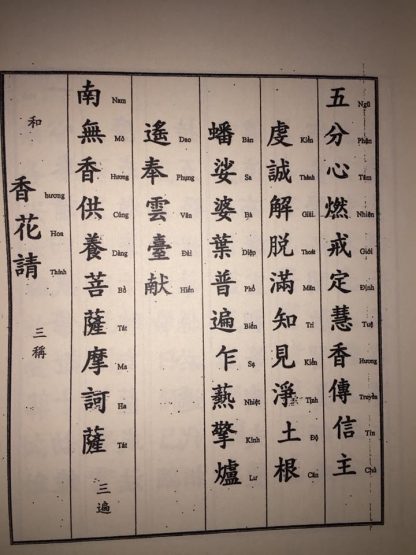 五分心燃戒定慧香傳信主
Ngũ Phận Tâm Nhiên Giới Định Tuệ Hương Truyền Tín Chủ
虔誠解脱滿知見淨土根
Kiền Thành Giải Thoát Mãn Trí Kiến Tịnh Độ Căn
蟠娑婆葉普遍乍爇擎爐
Bàn Sa Bà Diệp Phổ Biến Sạ Nhiệt Kính Lư
遙奉雲臺献
Dao Phụng Vân Đài Hiến
南無香供養菩薩摩訶薩 三遍
Nam Mô Hương Cúng Dàng Bồ Tát Ma Ha Tát
和 香花請 三稱
hương Hoa Thỉnh